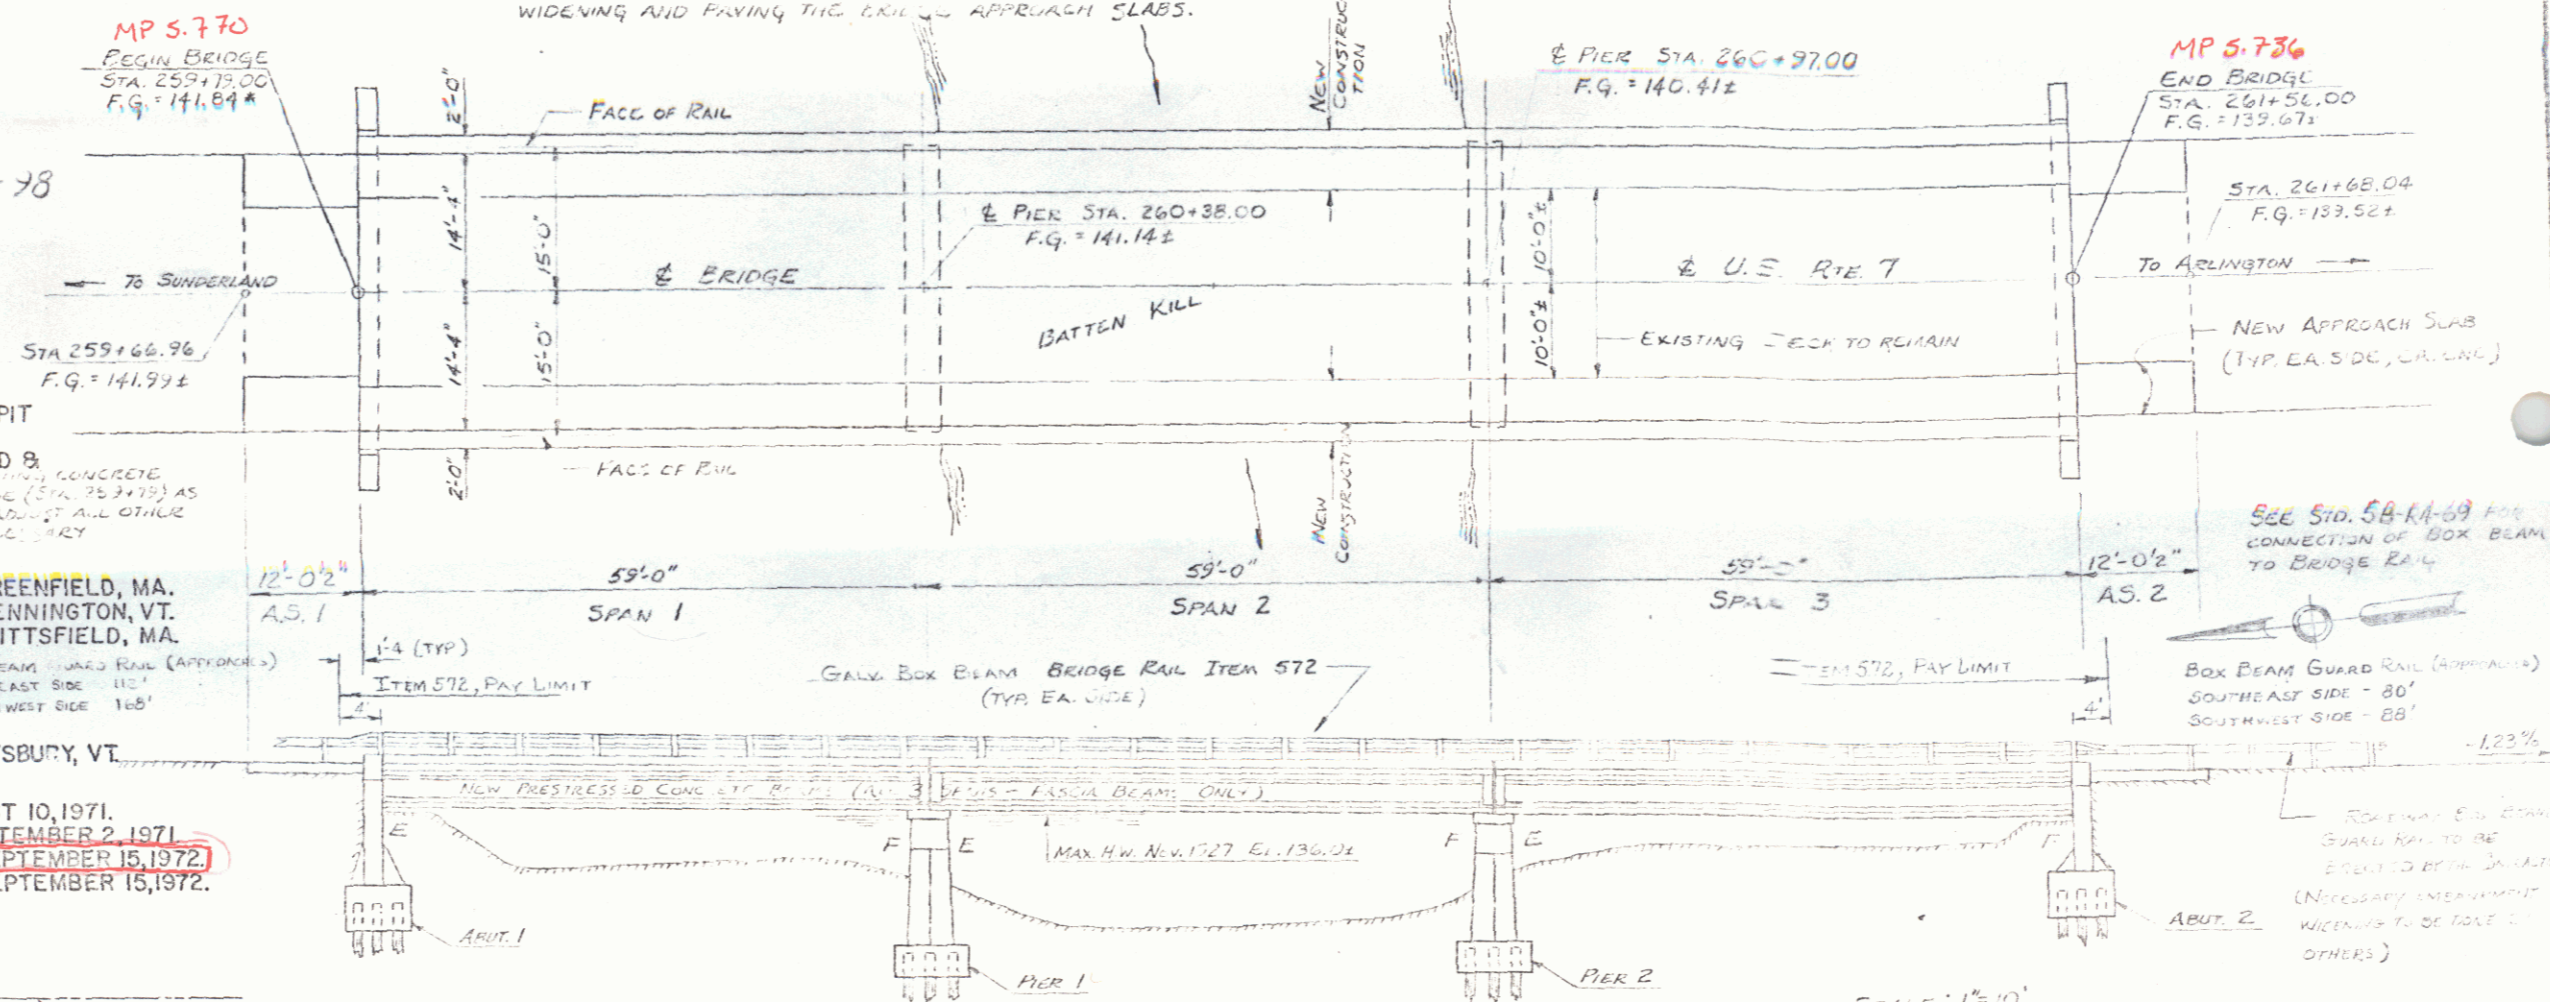 WIDENING AND PAVING THE BRIDGE APPROACH SLABS.
MP 5.770
BEGIN BRIDGE
STA. 259+79.00
F.G. = 141.84*
2'-0"
FACE OF RAIL
NEW
CONSTRUC
TION
℄ PIER STA. 260+97.00
F.G. = 140.41±
MP 5.736
END BRIDGE
STA. 261+56.00
F.G. = 139.67±
98
14'-4"
15'-0"
℄ PIER STA. 260+38.00
F.G. = 141.14±
10'-0"±
STA. 261+68.04
F.G. = 139.52±
← TO SUNDERLAND
℄ BRIDGE
℄ U.S. RTE. 7
TO ARLINGTON →
BATTEN KILL
STA 259+66.96
F.G. = 141.99±
14'-4"
15'-0"
10'-0"±
EXISTING DECK TO REMAIN
NEW APPROACH SLAB
(TYP. EA. SIDE, EA. END)
PIT
D &
CONCRETE
(STA. 259+79) AS
ADJUST ALL OTHER
FACE OF RAIL
2'-0"
NEW
CONSTRUCTION
SEE STD. SB-RA-69 FOR
CONNECTION OF BOX BEAM
TO BRIDGE RAIL
REENFIELD, MA.
ENNINGTON, VT.
ITTSFIELD, MA.
12'-0½"
A.S. 1
59'-0"
SPAN 1
59'-0"
SPAN 2
59'-0"
SPAN 3
12'-0½"
A.S. 2
EAM GUARD RAIL (APPROACHES)
EAST SIDE 112'
WEST SIDE 168'
1'-4 (TYP)
ITEM 572, PAY LIMIT
4'
GALV. BOX BEAM BRIDGE RAIL ITEM 572
(TYP. EA. SIDE)
ITEM 572, PAY LIMIT
4'
BOX BEAM GUARD RAIL (APPROACHES)
SOUTHEAST SIDE - 80'
SOUTHWEST SIDE - 88'
SBURY, VT.
-1.23%
NEW PRESTRESSED CONCRETE BEAMS (ALL 3 SPANS - FASCIA BEAMS ONLY)
T 10, 1971.
TEMBER 2, 1971.
EPTEMBER 15, 1972.
EPTEMBER 15, 1972.
E
F
E
MAX. H.W. NOV. 1927 EL. 136.0±
F
E
F
ROADWAY BOX BEAM
GUARD RAIL TO BE
ERECTED BY THE
(NECESSARY EMBANKMENT
WIDENING TO BE DONE
OTHERS)
ABUT. 1
PIER 1
PIER 2
ABUT. 2
SCALE: 1"=10'